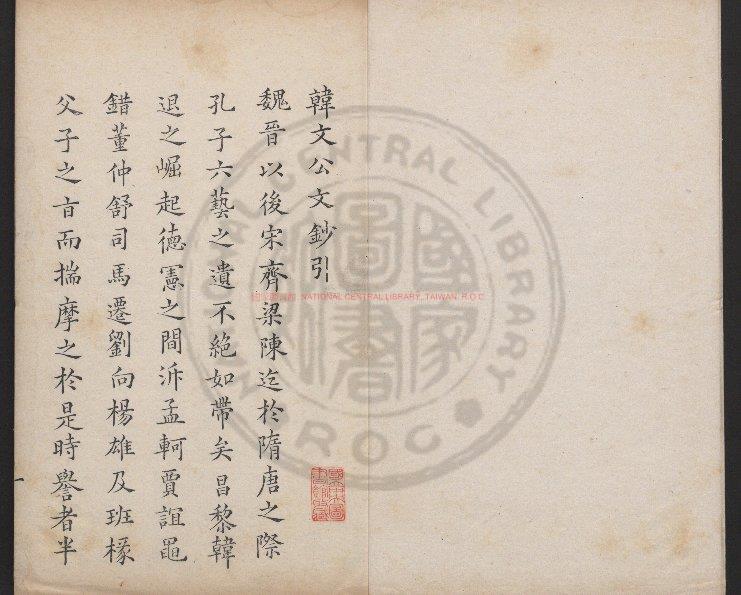 韓文公文鈔引
魏晉以後宋齊梁陳迄於隋唐之際
孔子六藝之遺不絕如帶矣昌黎韓
退之崛起德憲之間泝孟軻賈誼鼂
錯董仲舒司馬遷劉向楊雄及班椽
父子之旨而揣摩之於是時譽者半
NATIONAL CENTRAL LIBRARY, TAIWAN, R.O.C
NATIONAL CENTRAL LIBRARY
R.O.C
國家圖書